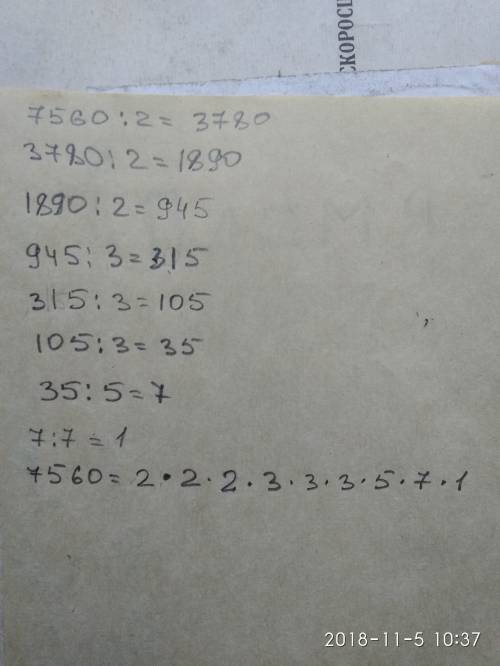 СКОРОСШ
7560:2= 3780
3780:2=1890
1890:2=945
945:3=315
315:3=105
105:3=35
35:5=7
7:7=1
7560=2·2·2·3·3·3·5·7·1
2018-11-5 10:37